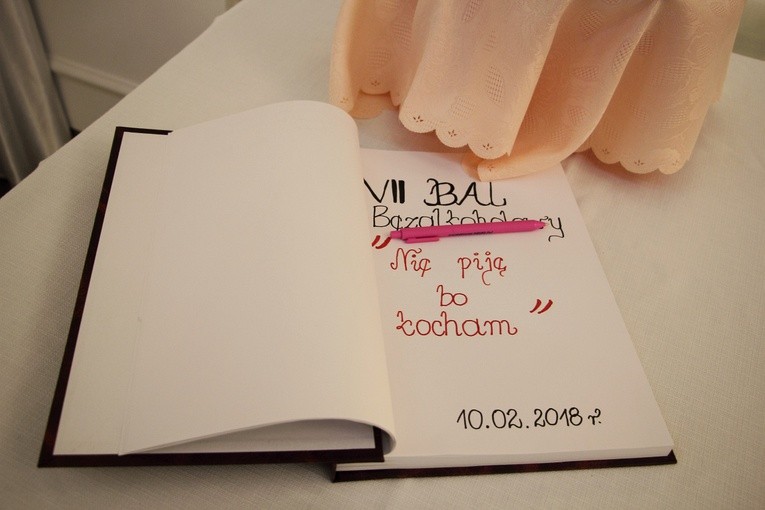 VII BAL
Bezalkoholowy
"Nie piję
bo
kocham"
10.02.2018 r.